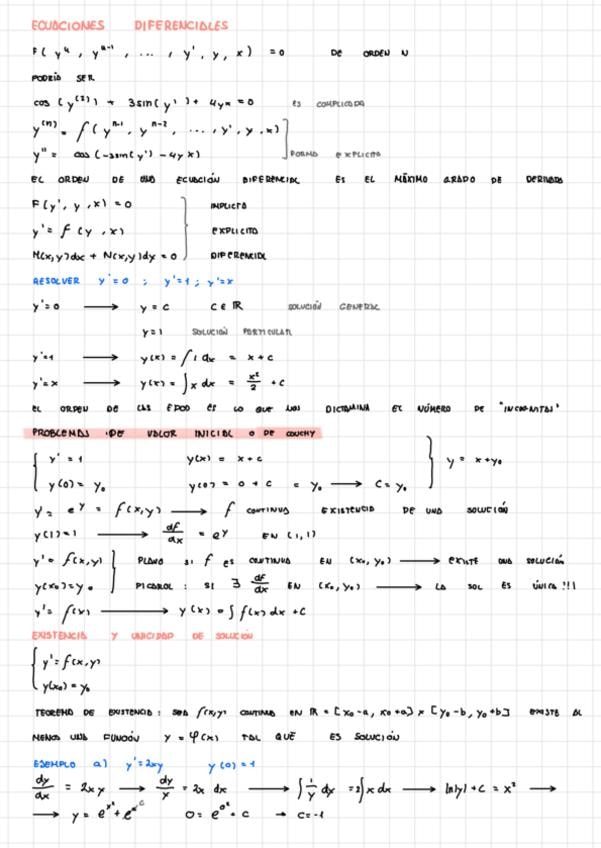 ECUACIONES DIFERENCIALES
F( yⁿ, yⁿ⁻¹, ... , y', y, x) = 0 DE ORDEN N
PODRÍA SER
cos (y⁽²⁾) + 3sin(y') + 4yx = 0 ES COMPLICADA
y⁽ⁿ⁾ = f(yⁿ⁻¹, yⁿ⁻², ..., y', y, x)
y'' = cos (-3sin(y') - 4yx) FORMA EXPLICITA
EL ORDEN DE UNA ECUACIÓN DIFERENCIAL ES EL MÁXIMO GRADO DE DERIVADA
F(y', y, x) = 0 IMPLICITA
y' = f(y, x) EXPLICITA
M(x,y)dx + N(x,y)dy = 0 DIFERENCIAL
RESOLVER y'=0 ; y'=1 ; y'=x
y'=0 → y = c C ∈ ℝ SOLUCIÓN GENERAL
y=1 SOLUCIÓN PARTICULAR
y'=1 → y(x) = ∫1 dx = x + c
y'=x → y(x) = ∫x dx = x²/2 + c
EL ORDEN DE LAS EDOS ES LO QUE NOS DICTAMINA EL NÚMERO DE "INCÓGNITAS"
PROBLEMAS DE VALOR INICIAL O DE COUCHY
y' = 1 y(x) = x + c
y(0) = y₀ y(0) = 0 + c = y₀ → C = y₀ y = x + y₀
y' = eʸ = f(x,y) → f CONTINUA EXISTENCIA DE UNA SOLUCIÓN
y(1) = 1 → df/dx = eʸ EN (1,1)
y' = f(x,y) PEANO SI f ES CONTINUA EN (x₀, y₀) → EXISTE UNA SOLUCIÓN
y(x₀) = y₀ PICARD : SI ∃ df/dx EN (x₀, y₀) → LA SOL ES ÚNICA !!!
y' = f(x) → y(x) = ∫f(x) dx + C
EXISTENCIA Y UNICIDAD DE SOLUCIÓN
y' = f(x,y)
y(x₀) = y₀
TEOREMA DE EXISTENCIA : SEA f(x,y) CONTINUA EN R = [x₀-a, x₀+a] × [y₀-b, y₀+b] EXISTE AL
MENOS UNA FUNCIÓN y = φ(x) TAL QUE ES SOLUCIÓN
EJEMPLO a) y' = 2xy y(0) = 1
dy/dx = 2xy → dy/y = 2x dx → ∫1/y dy = 2∫x dx → ln|y| + C = x² →
→ y = eˣ² + eˣᶜ 0 = e⁰² + c → C = -1